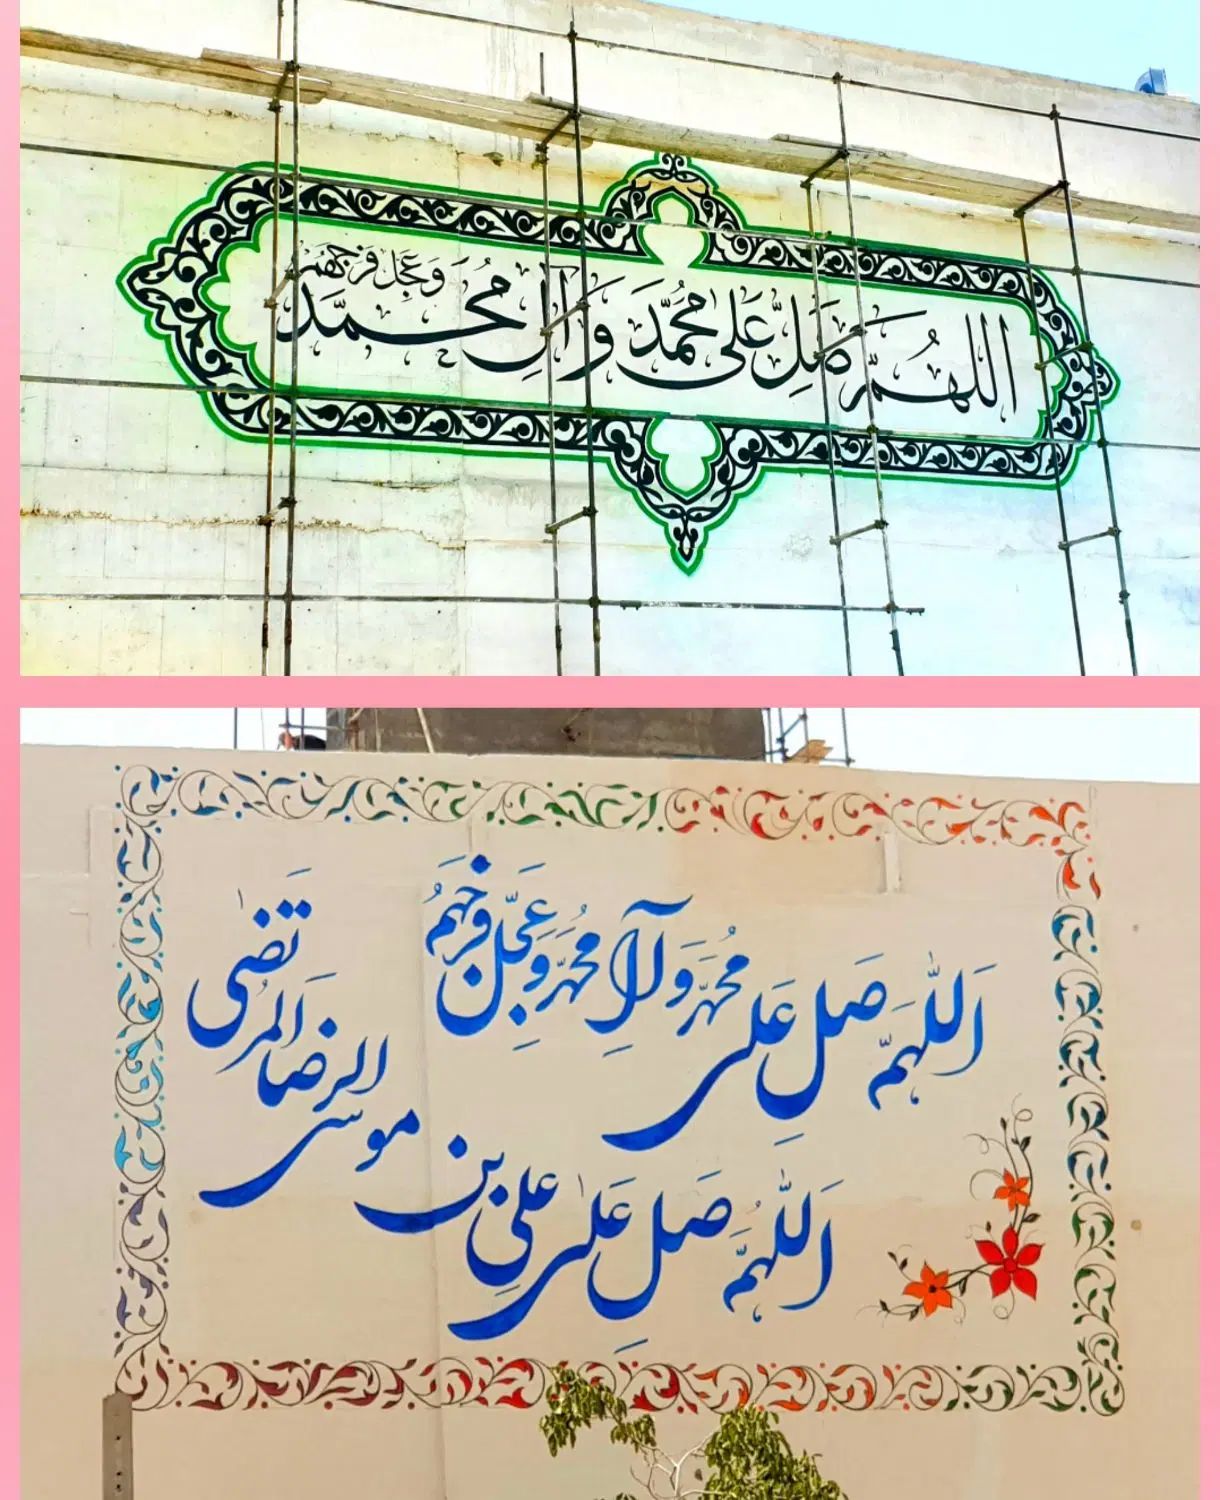 اللهُمَّ صَلِّ عَلی مُحَمَّد وَ آلِ مُحَمَّد وَ عَجِّل فَرَجَهُم
اَللّٰهُمَّ صَلِّ عَلی مُحَمَّد وَ آلِ مُحَمَّد وَ عَجِّل فَرَجَهُم
اَللّٰهُمَّ صَلِّ عَلی عَلی بن موسَی الرضا المُرتَضی